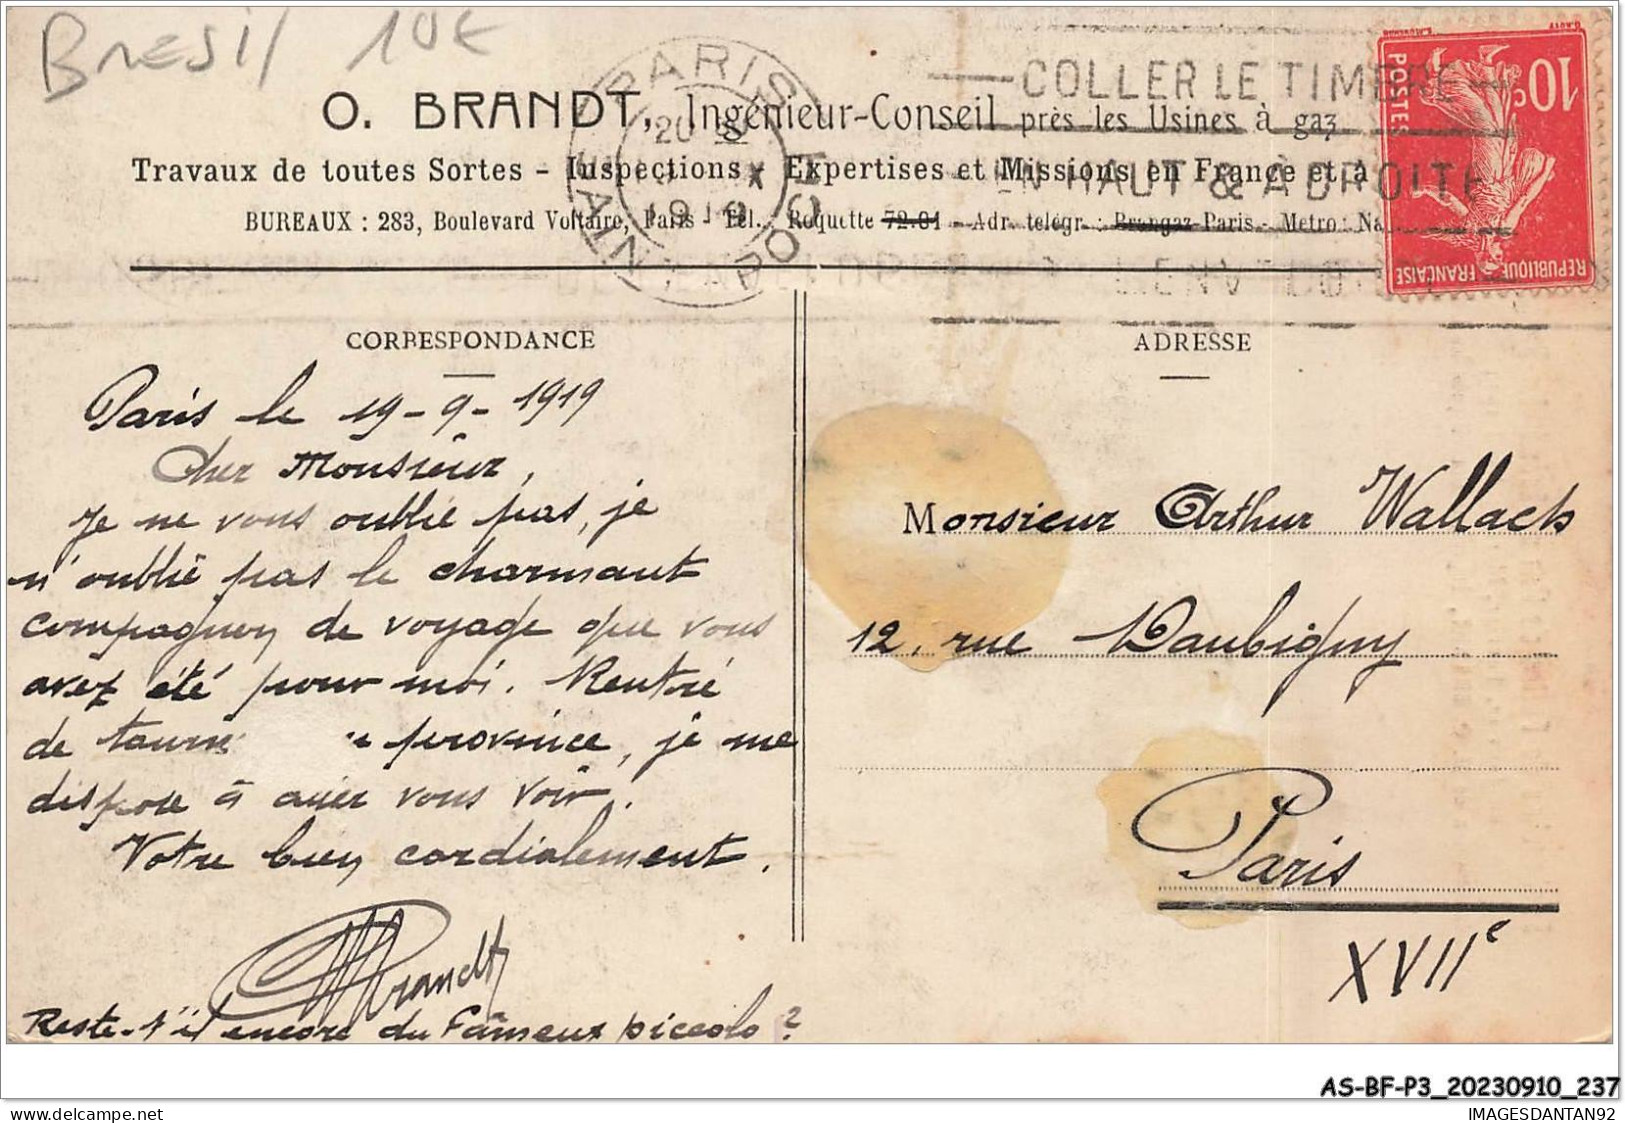 Bresil 10€
O. BRANDT, Ingénieur-Conseil près les Usines à gaz
Travaux de toutes Sortes - Inspections - Expertises et Missions en France et à
BUREAUX : 283, Boulevard Voltaire, Paris - Tél. Roquette 72.04 - Adr. télégr. : Brangaz-Paris - Métro : Na
PARIS
20
1919
COLLER LE TIMBRE
EN HAUT & A DROITE
10c
POSTES
REPUBLIQUE FRANÇAISE
CORRESPONDANCE
Paris le 19-9-1919
Cher Monsieur,
Je ne vous oublie pas, je
n'oublie pas le charmant
compagnon de voyage que vous
avez été pour moi. Rentré
de province, je me
dispose à aller vous voir.
Votre bien cordialement.
Brandt
Reste-t'il encore du fameux piccolo ?
ADRESSE
Monsieur Arthur Wallach
12, rue Daubigny
Paris
XVIIe
AS-BF-P3_20230910_237
IMAGESDANTAN92